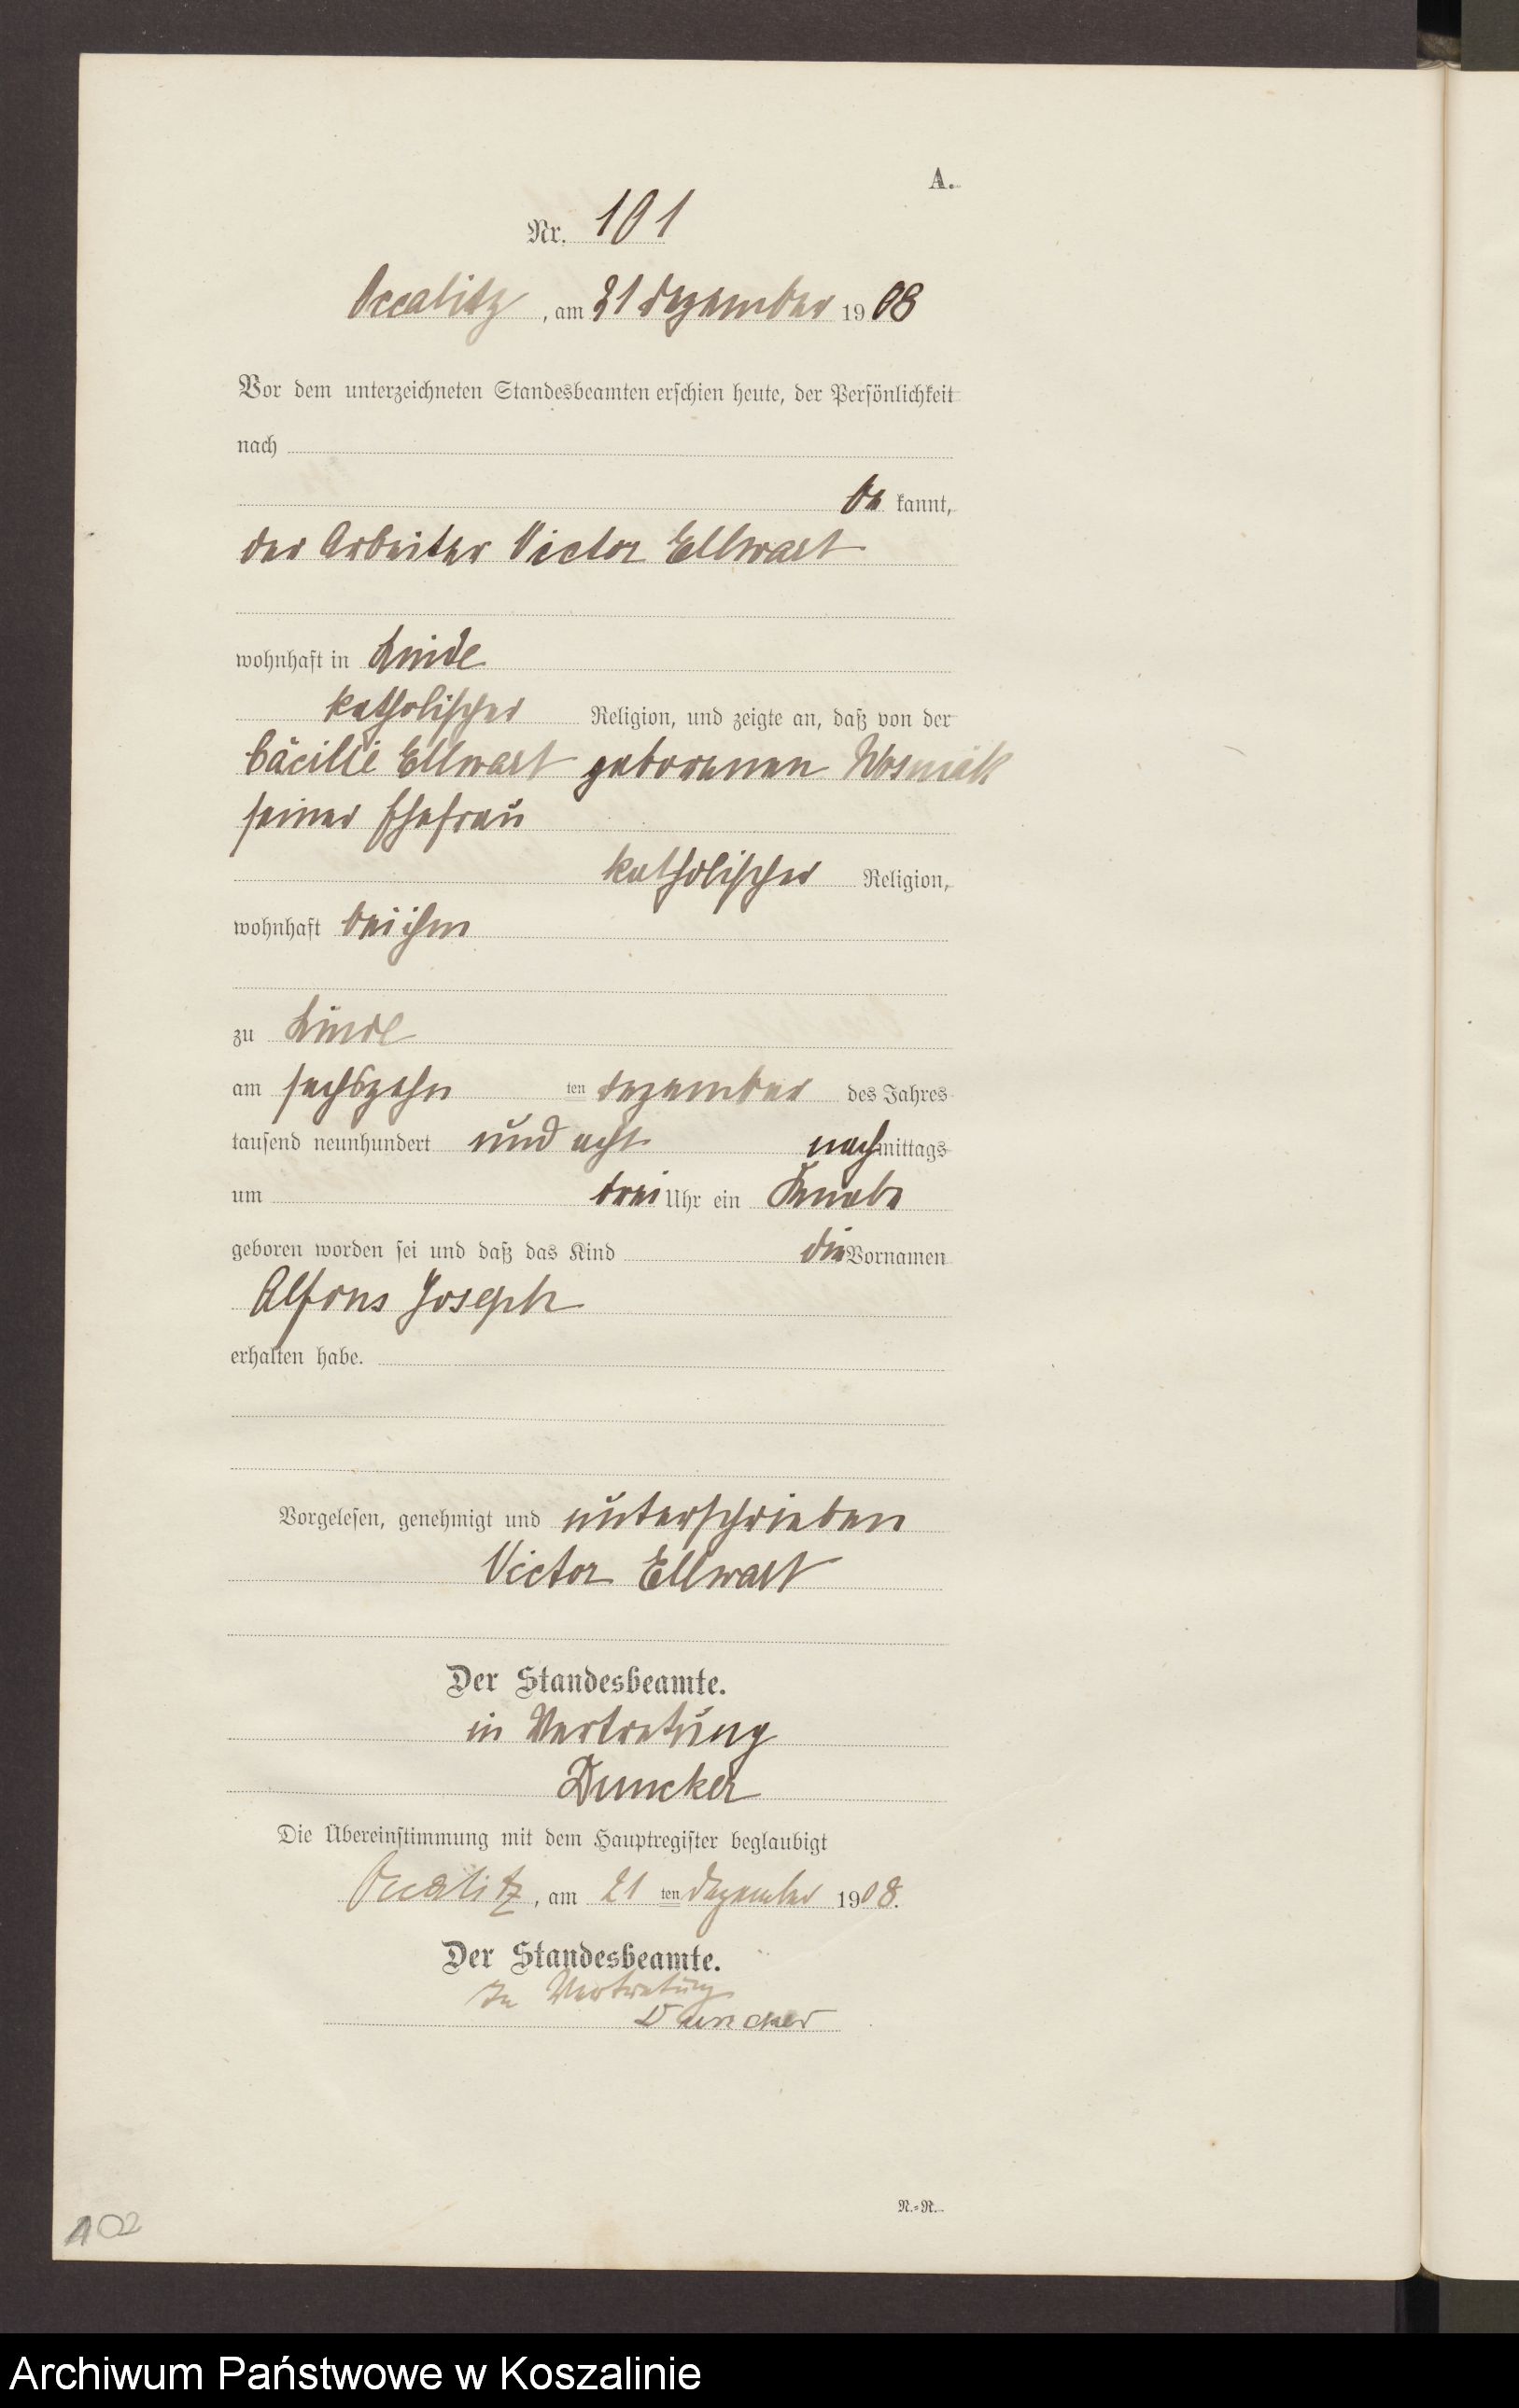 A.
Nr. 101
Occalitz, am 21 Dezember 1908
Vor dem unterzeichneten Standesbeamten erschien heute, der Persönlichkeit
nach
be kannt,
der Arbeiter Victor Ellwart
wohnhaft in Linde
katholischer Religion, und zeigte an, daß von der
Cäcilie Ellwart geborenen Wosniak
seiner Ehefrau
katholischer Religion,
wohnhaft bei ihm
zu Linde
am sechszehn ten Dezember des Jahres
tausend neunhundert und acht nachmittags
um drei Uhr ein Knabe
geboren worden sei und daß das Kind die Vornamen
Alfons Joseph
erhalten habe.
Vorgelesen, genehmigt und unterschrieben
Victor Ellwart
Der Standesbeamte.
in Vertretung
Duncker
Die Übereinstimmung mit dem Hauptregister beglaubigt
Occalitz, am 21 ten Dezember 1908.
Der Standesbeamte.
In Vertretung
Duncker
N.=R.
102
Archiwum Państwowe w Koszalinie